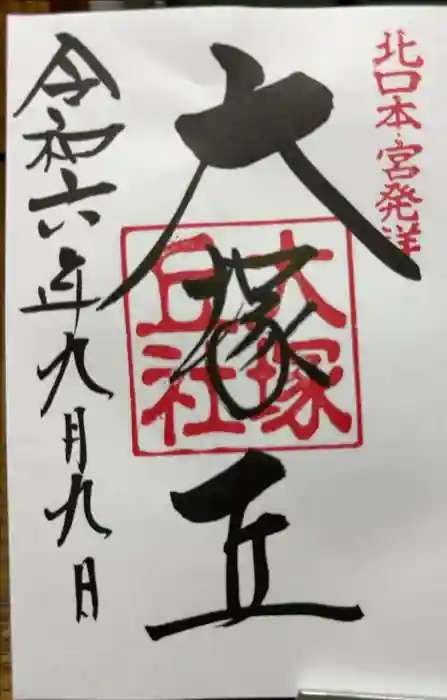 北口本宮発祥
大塚丘
大塚
丘社
令和六年九月九日